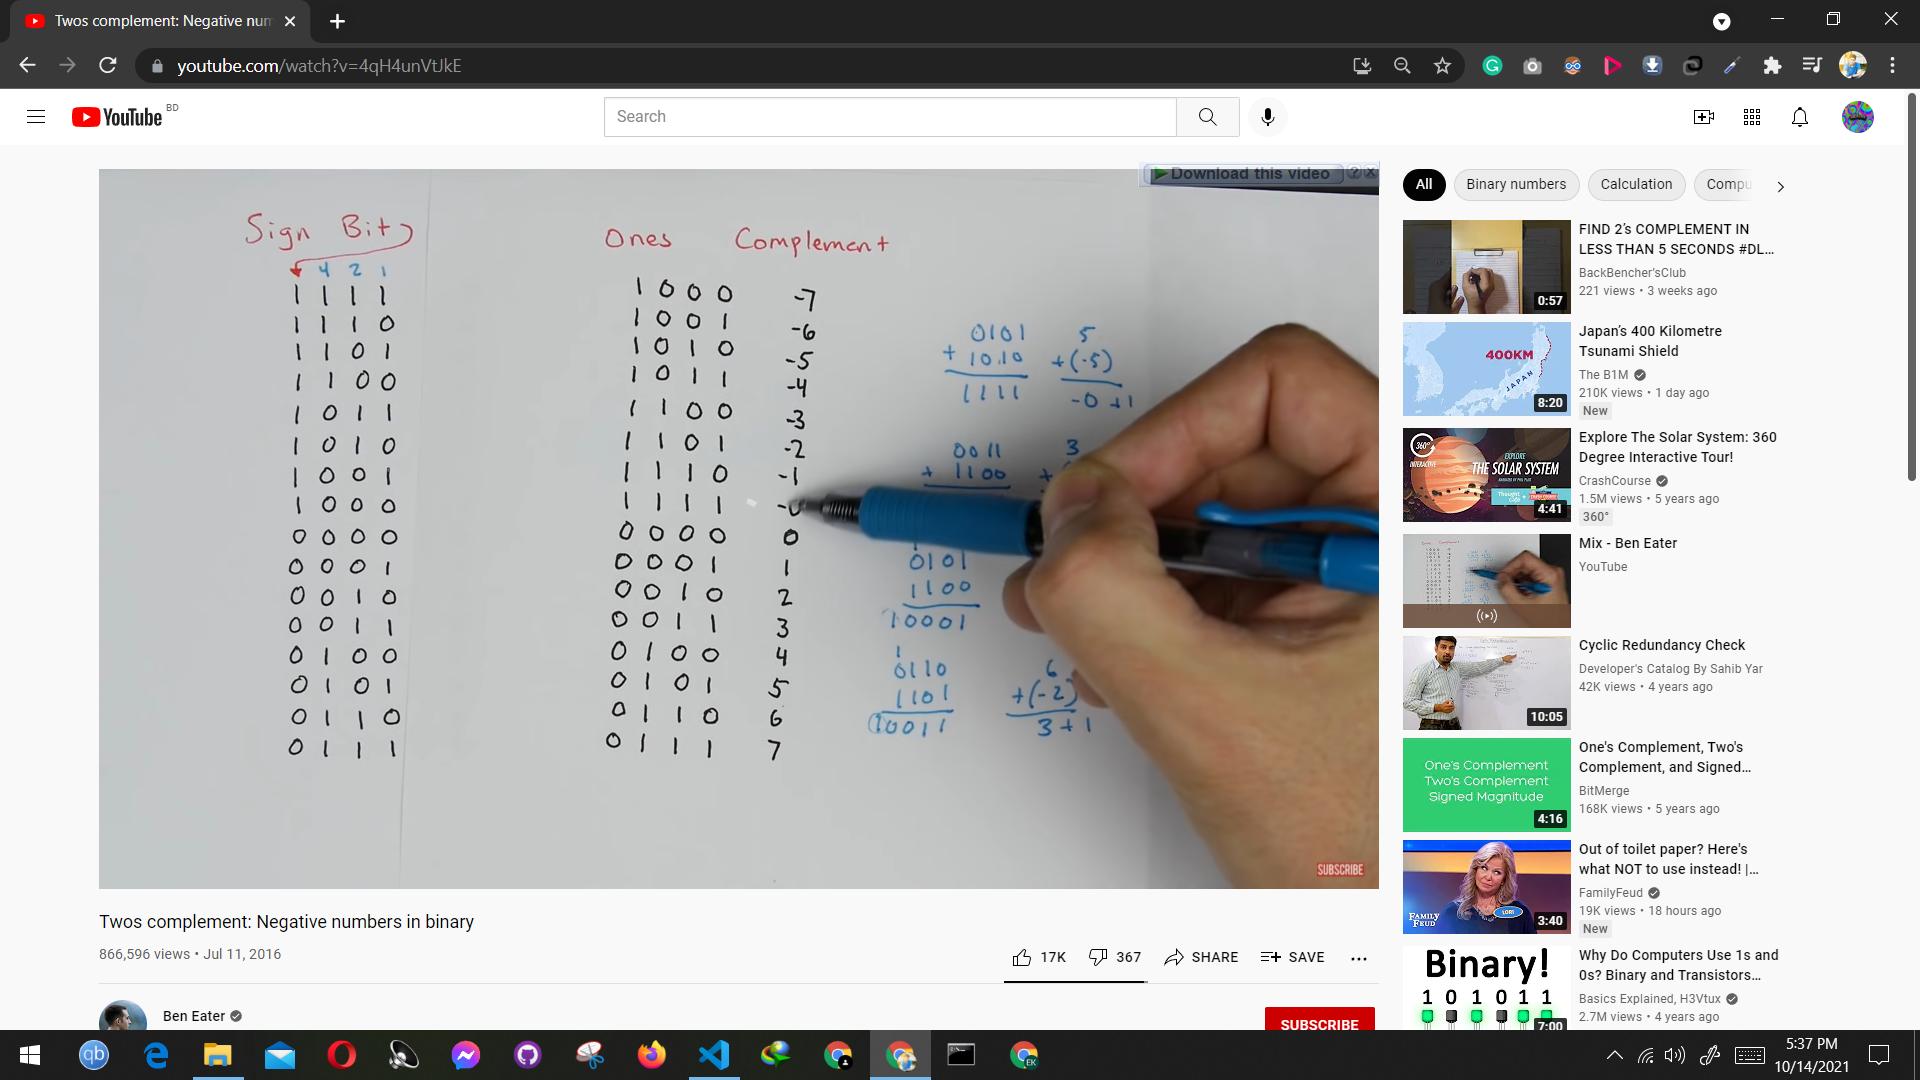 Twos complement: Negative num
youtube.com/watch?v=4qH4unVtJkE
YouTube BD
Search
Download this video
Sign Bit
4 2 1
1 1 1 1
1 1 1 0
1 1 0 1
1 1 0 0
1 0 1 1
1 0 1 0
1 0 0 1
1 0 0 0
0 0 0 0
0 0 0 1
0 0 1 0
0 0 1 1
0 1 0 0
0 1 0 1
0 1 1 0
0 1 1 1
Ones Complement
1 0 0 0 -7
1 0 0 1 -6
1 0 1 0 -5
1 0 1 1 -4
1 1 0 0 -3
1 1 0 1 -2
1 1 1 0 -1
1 1 1 1 -0
0 0 0 0 0
0 0 0 1 1
0 0 1 0 2
0 0 1 1 3
0 1 0 0 4
0 1 0 1 5
0 1 1 0 6
0 1 1 1 7
0101 5
+ 1010 +(-5)
1111 -0 +1
0011 3
+ 1100 +
0101
1100
10001
1
0110 6
1101 +(-2)
10011 3+1
SUBSCRIBE
Twos complement: Negative numbers in binary
866,596 views • Jul 11, 2016
17K 367 SHARE SAVE
Ben Eater
SUBSCRIBE
All Binary numbers Calculation Compu
FIND 2's COMPLEMENT IN
LESS THAN 5 SECONDS #DL...
BackBencher'sClub
221 views • 3 weeks ago
0:57
400KM
JAPAN
8:20
Japan's 400 Kilometre
Tsunami Shield
The B1M
210K views • 1 day ago
New
360°
INTERACTIVE
EXPLORE
THE SOLAR SYSTEM
4:41
Explore The Solar System: 360
Degree Interactive Tour!
CrashCourse
1.5M views • 5 years ago
360°
Mix - Ben Eater
YouTube
10:05
Cyclic Redundancy Check
Developer's Catalog By Sahib Yar
42K views • 4 years ago
One's Complement
Two's Complement
Signed Magnitude
4:16
One's Complement, Two's
Complement, and Signed...
BitMerge
168K views • 5 years ago
FAMILY
FEUD
LORI
3:40
Out of toilet paper? Here's
what NOT to use instead! |...
FamilyFeud
19K views • 18 hours ago
New
Binary!
1 0 1 0 1 1
7:00
Why Do Computers Use 1s and
0s? Binary and Transistors...
Basics Explained, H3Vtux
2.7M views • 4 years ago
qb
EK
5:37 PM
10/14/2021